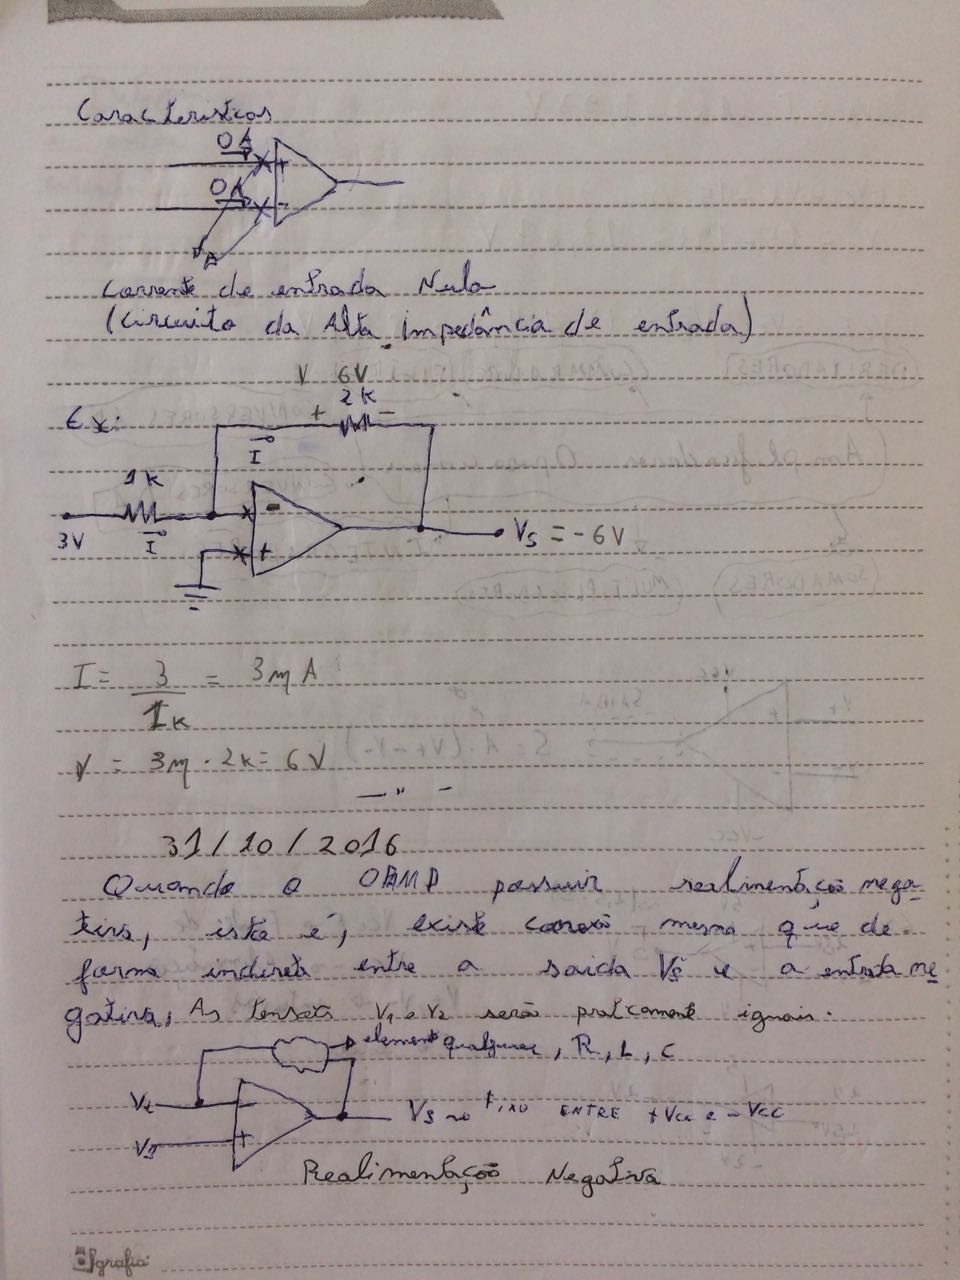 Características
0A
+
0A
-
Corrente de entrada Nula
(Circuito da Alta impedância de entrada)
V 6V
2K
Ex:
+ -
I
1K
-
3V
I
+
Vs = -6V
I = 3 / 1K = 3mA
V = 3m . 2K = 6V
31/10/2016
Quando o OPAMP possuir realimentação nega-
tiva, isto é, existe conexão mesmo que de
forma indireta entre a saída Vs e a entrada ne
gativa, As tensões V1 e V2 serão praticamente iguais.
element qualquer, R, L, C
-
+
Vs no fixo ENTRE +Vcc e -Vcc
Realimentação Negativa
grafia